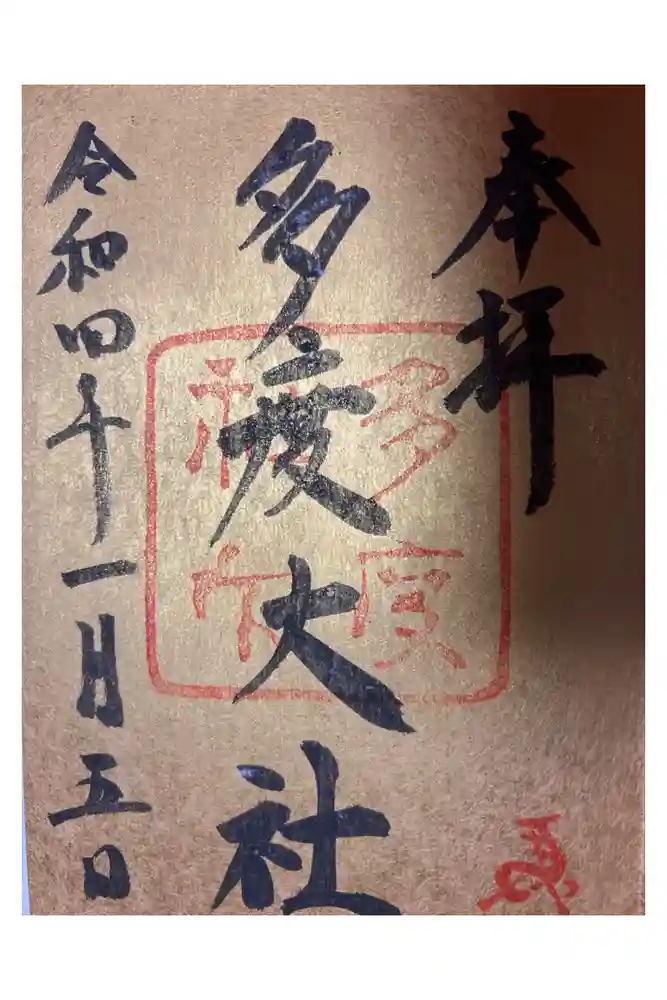 奉拝
多度大社
令和四十一月五日
多度
神宮